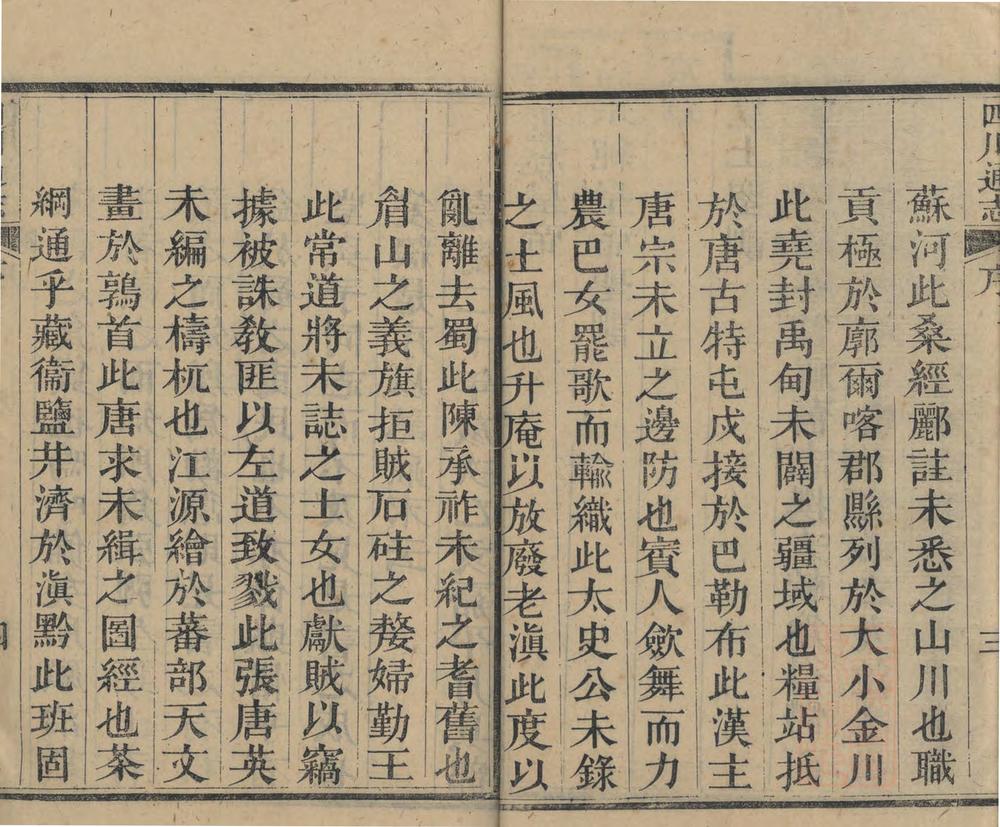 四川通志
序
三
蘇河此桑經酈註未悉之山川也職
貢極於廓爾喀郡縣列於大小金川
此堯封禹甸未闢之疆域也糧站抵
於唐古特屯戍接於巴勒布此漢主
唐宗未立之邊防也賨人歛舞而力
農巴女罷歌而輸織此太史公未錄
之土風也升庵以放廢老滇此度以
亂離去蜀此陳承祚未紀之耆舊也
眉山之義旗拒賊石砫之嫠婦勤王
此常道將未誌之士女也獻賊以竊
據被誅敎匪以左道致戮此張唐英
未編之檮杌也江源繪於蕃部天文
畫於鶉首此唐求未緝之圖經也茶
綱通乎藏衞鹽井濟於滇黔此班固